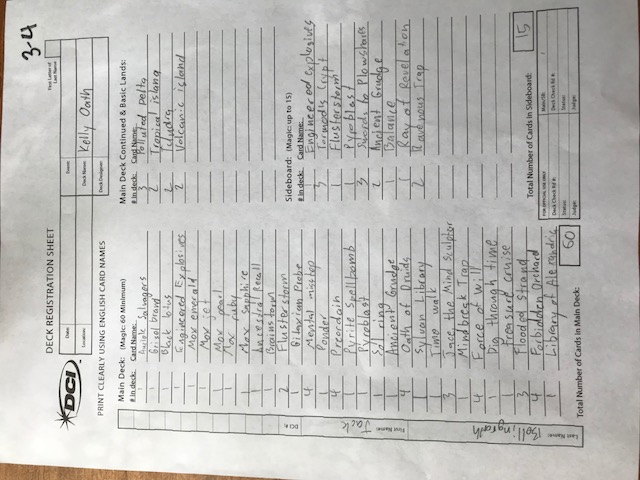 3-4
DECK REGISTRATION SHEET
First Letter of
Last Name
DCI
Date:
Event:
Location:
Deck Name: Kelly Oath
Deck Designer:
PRINT CLEARLY USING ENGLISH CARD NAMES
Main Deck: (Magic: 60 Minimum)
# in deck: Card Name:
1 Auriok Salvagers
1 Griselbrand
1 Black lotus
1 Engineered Explosives
1 Mox emerald
Mox jet
1 Mox pearl
1 Mox ruby
1 Mox Sapphire
1 Ancestral Recall
1 Brainstorm
2 Flusterstorm
1 Gitaxian Probe
4 Mental misstep
1 Ponder
4 Preordain
1 Pyrite Spellbomb
1 Pyroblast
1 Sol ring
1 Ancient Grudge
4 Oath of Druids
1 Sylvan Library
1 Time walk
3 Jace, the Mind Sculptor
1 Mindbreak Trap
4 Force of Will
1 Dig through time
1 treasure cruise
3 Flooded Strand
4 Forbidden Orchard
1 Library of Alexandria
Total Number of Cards in Main Deck: 60
Main Deck Continued & Basic Lands:
# in deck: Card Name:
3 Polluted Delta
2 Tropical island
2 Tundra
2 Volcanic island
Sideboard: (Magic: up to 15)
# in deck: Card Name:
1 Engineered explosives
3 Tormod's Crypt
1 Flusterstorm
1 Pyroblast
3 Swords to Plowshares
2 Ancient Grudge
1 Balance
1 Ray of Revelation
2 Ravenous Trap
Total Number of Cards in Sideboard: 15
FOR OFFICIAL USE ONLY
Main/SB: /
Deck Check Rd #:
Deck Check Rd #:
Status:
Status:
Judge:
Judge:
DCI #:
First Name: Jack
Last Name: